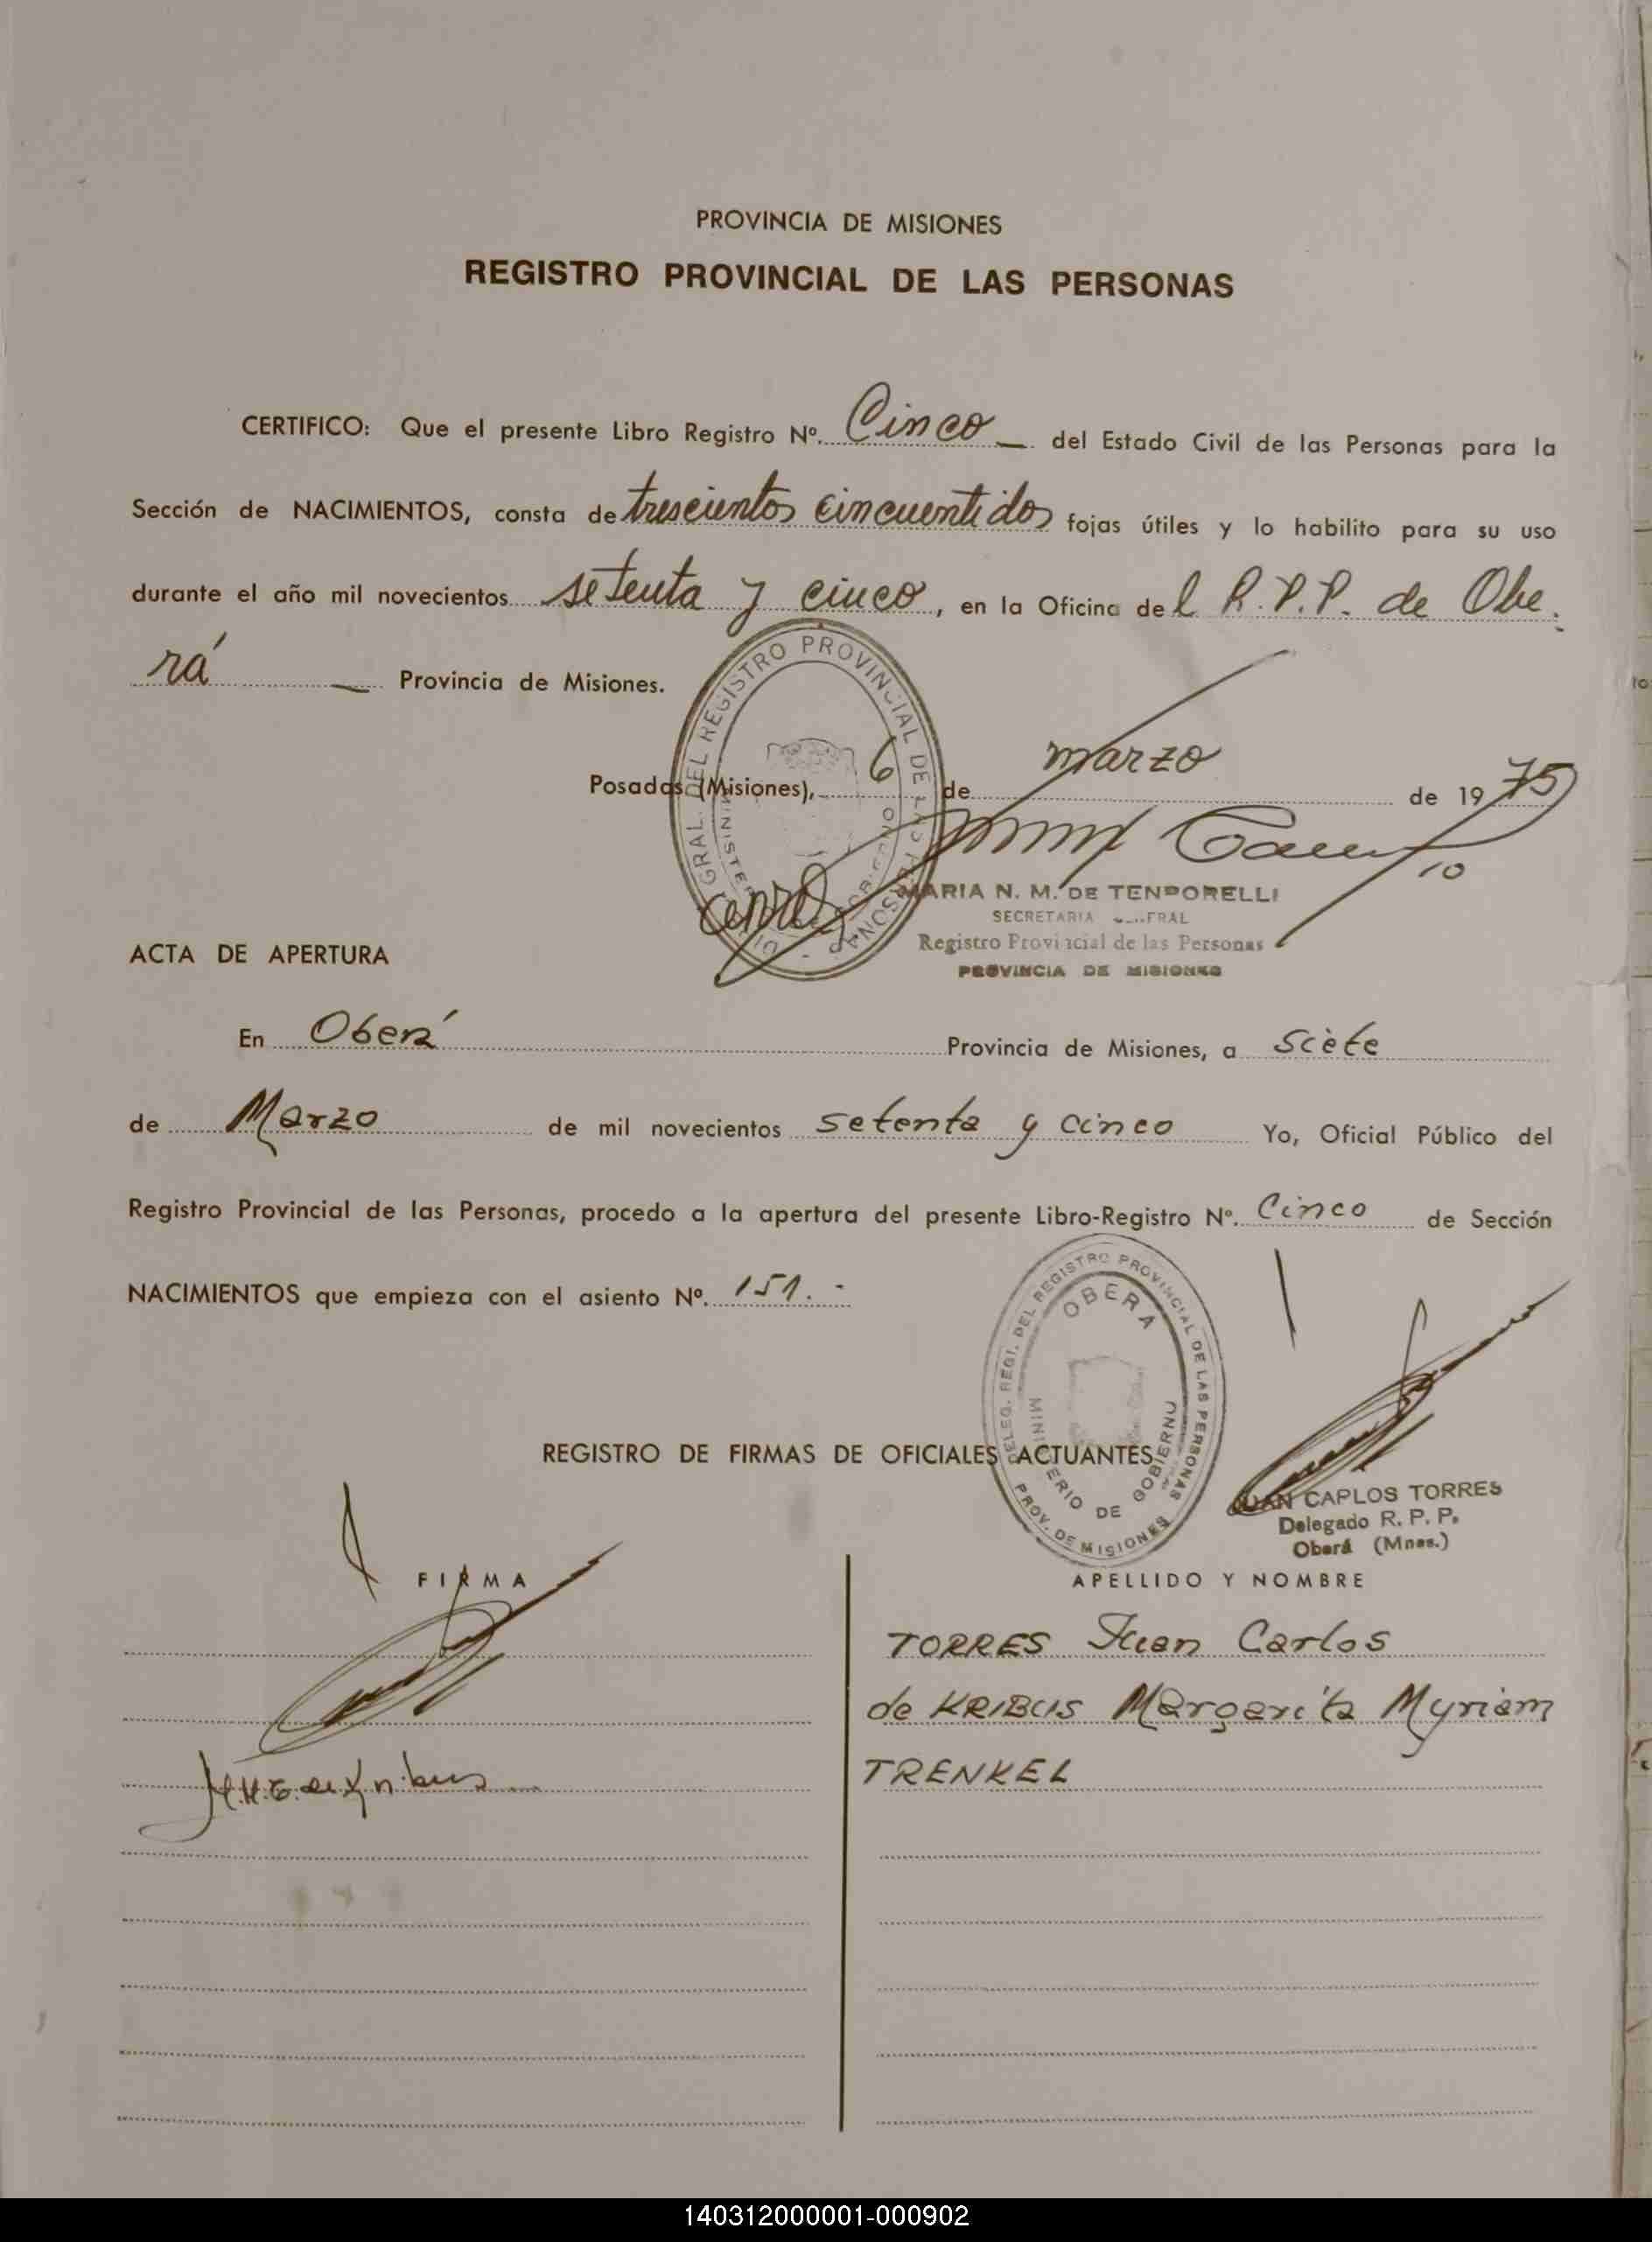 PROVINCIA DE MISIONES
REGISTRO PROVINCIAL DE LAS PERSONAS
CERTIFICO: Que el presente Libro Registro Nº. Cinco del Estado Civil de las Personas para la
Sección de NACIMIENTOS, consta de trescientos cincuentidos fojas útiles y lo habilito para su uso
durante el año mil novecientos setenta y cinco, en la Oficina del R.P.P. de Obe.
rá Provincia de Misiones.
Posadas (Misiones), 6 de marzo de 1975
MARIA N. M. DE TENPORELLI
SECRETARIA
Registro Provincial de las Personas
PROVINCIA DE MISIONES
ACTA DE APERTURA
En Oberá Provincia de Misiones, a Siete
de Marzo de mil novecientos setenta y cinco Yo, Oficial Público del
Registro Provincial de las Personas, procedo a la apertura del presente Libro-Registro Nº. Cinco de Sección
NACIMIENTOS que empieza con el asiento Nº. 151.-
DELEG. REGI. DEL REGISTRO PROVINCIAL DE LAS PERSONAS
OBERA
MINISTERIO DE GOBIERNO
PROV. DE MISIONES
REGISTRO DE FIRMAS DE OFICIALES ACTUANTES
JUAN CARLOS TORRES
Delegado R. P. P.
Oberá (Mnes.)
FIRMA
APELLIDO Y NOMBRE
TORRES Juan Carlos
de KRIBUS Margarita Myriam
TRENKEL
140312000001-000902